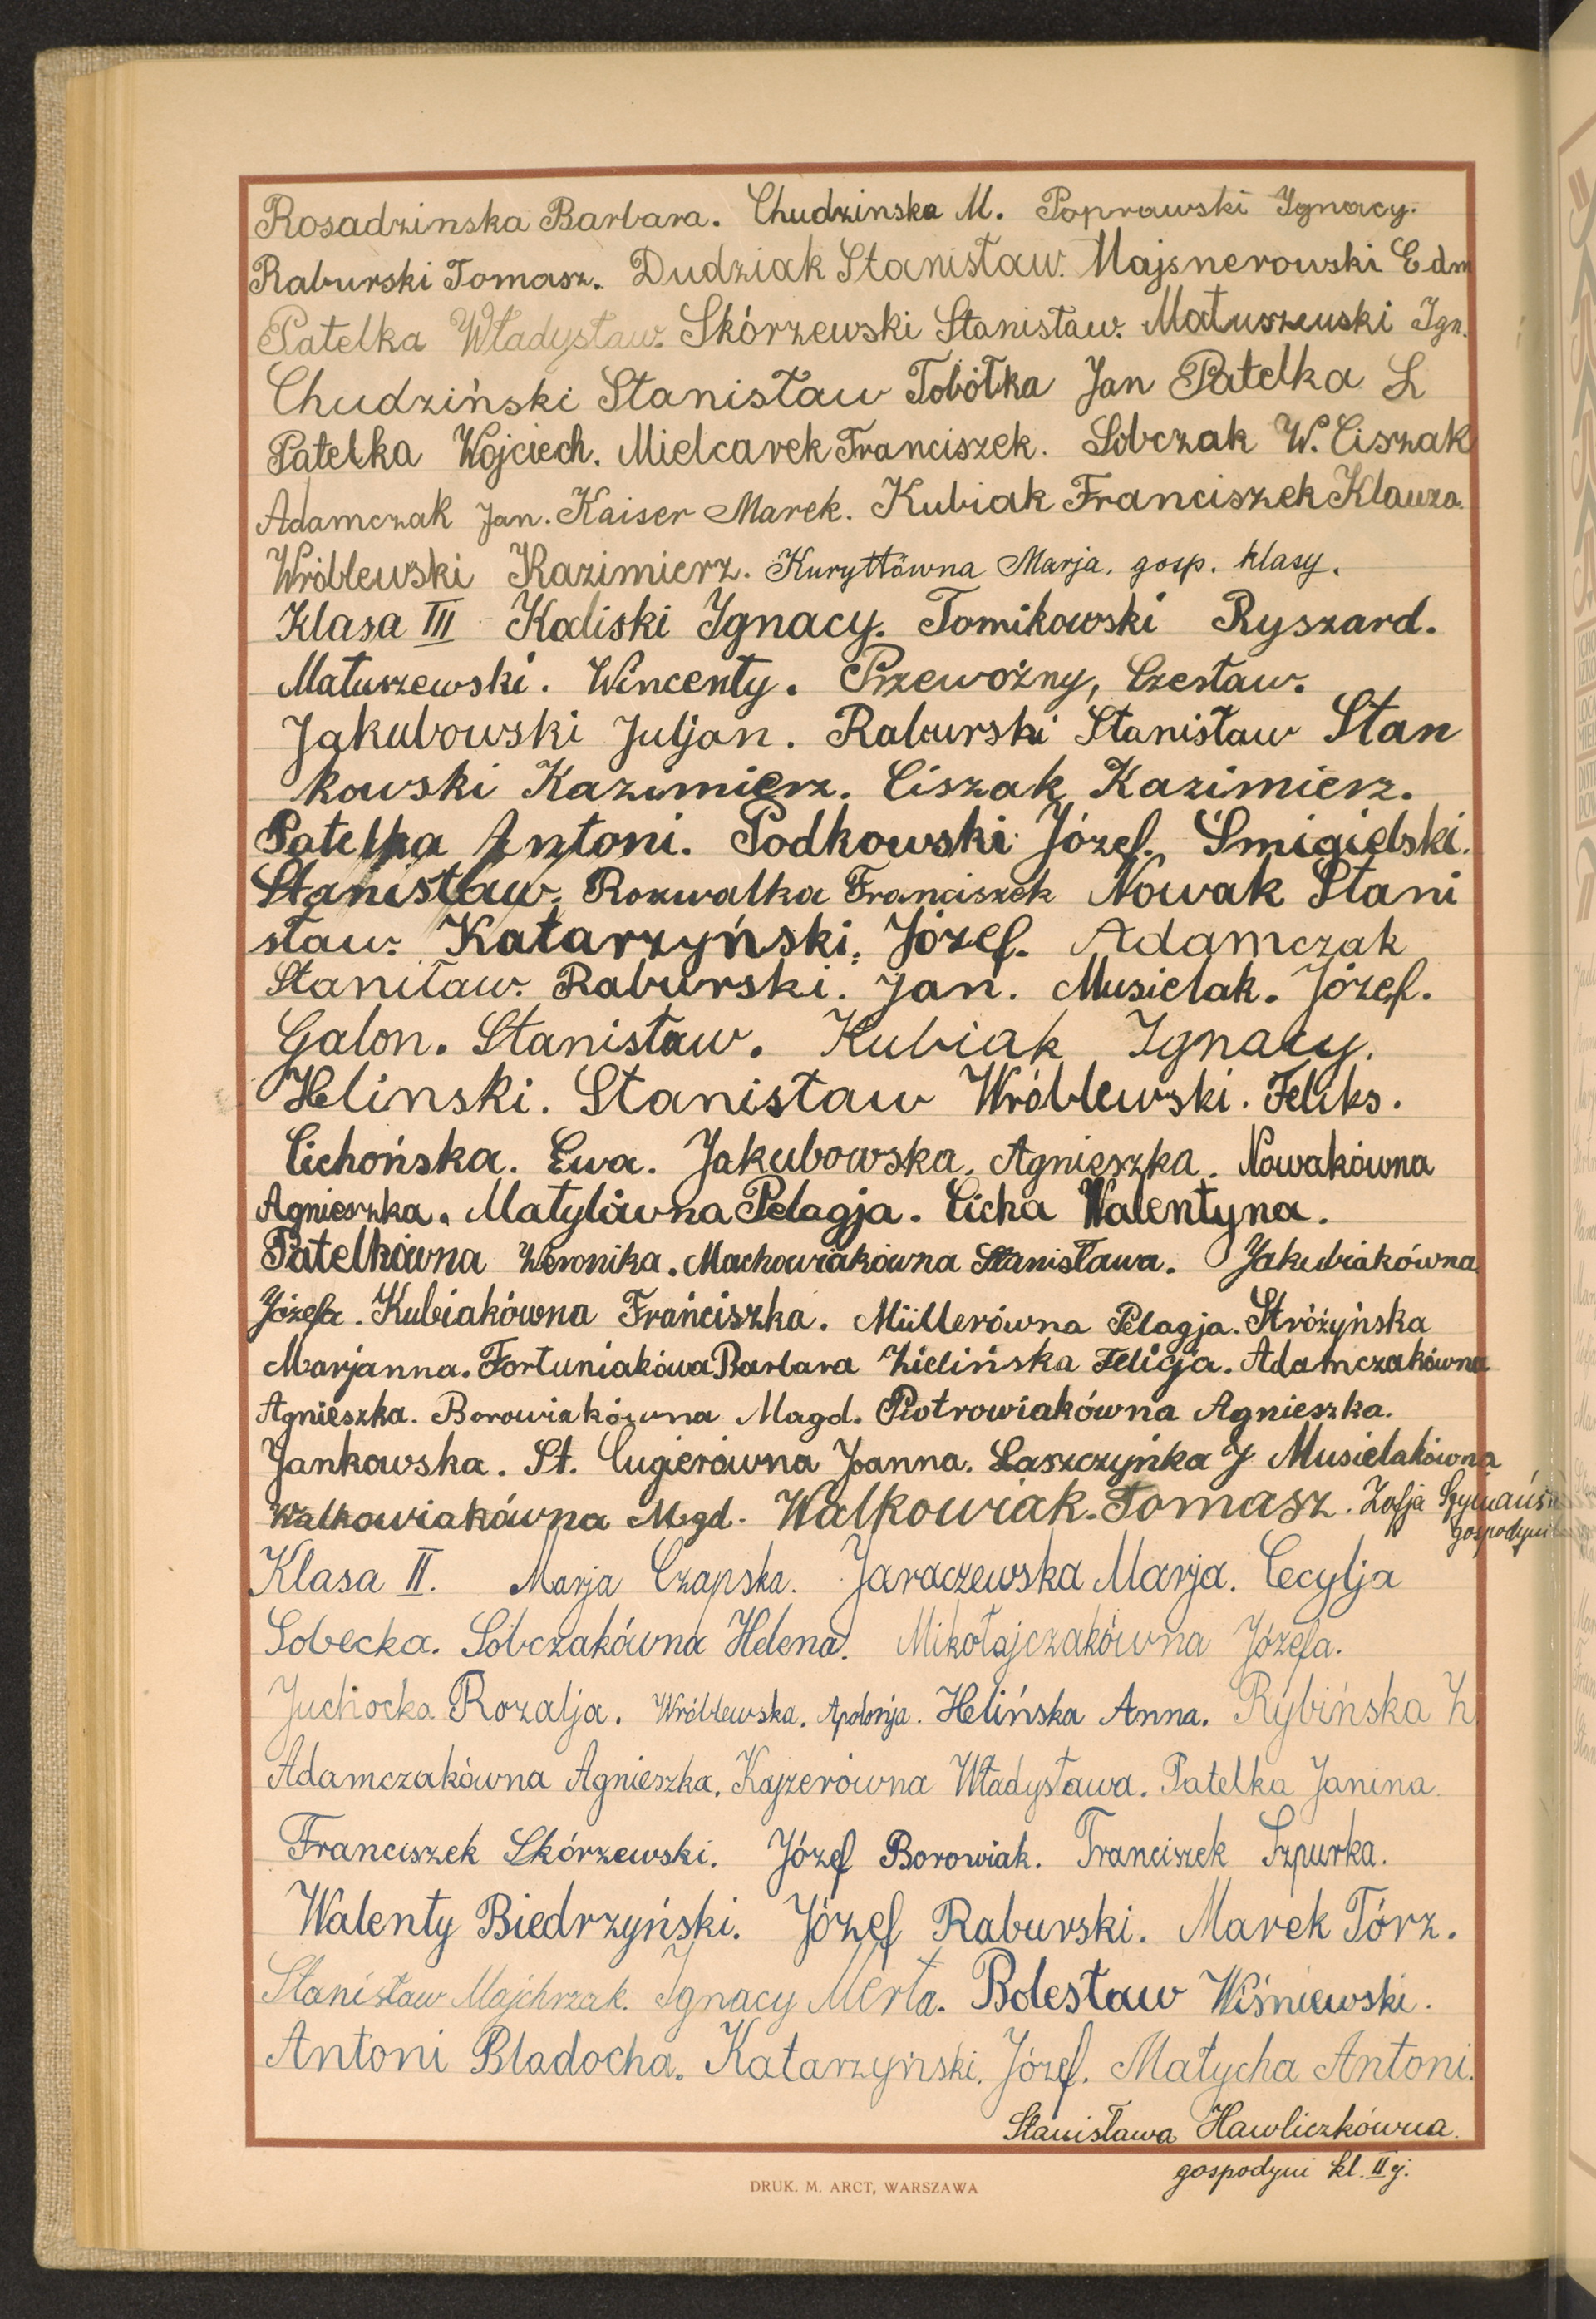 Rosadzinska Barbara. Chudzinska M. Poprawski Ignacy.
Raburski Tomasz. Dudziak Stanisław. Majsnerowski Edm
Patelka Władysław. Skórzewski Stanisław. Matuszewski Ign.
Chudziński Stanisław Tobółka Jan Patelka L
Patelka Wojciech. Mielcarek Franciszek. Sobczak W. Ciszak
Adamczak Jan. Kaiser Marek. Kubiak Franciszek Klauza.
Wróblewski Kazimierz. Kuryłłówna Marja, gosp. klasy.
Klasa III Kaliski Ignacy. Tomikowski Ryszard.
Matuszewski. Wincenty. Przewoźny, Czesław.
Jakubowski Juljan. Raburski Stanisław Stan
kowski Kazimierz. Ciszak Kazimierz.
Patelka Antoni. Podkowski Józef. Śmigielski.
Stanisław. Rozwalka Franciszek Nowak Stani
sław. Katarzyński, Józef. Adamczak
Staniław. Raburski. Jan. Musielak. Józef.
Galon. Stanisław. Kubiak Ignacy.
Helinski. Stanisław Wróblewski. Feliks.
Cichońska. Ewa. Jakubowska, Agnieszka. Nowakówna
Agnieszka. Matylówna Pelagja. Cicha Walentyna.
Patelkówna Weronika. Machowiakówna Stanisława. Jakubiakówna
Józefa. Kubiakówna Franciszka. Müllerówna Pelagja. Stróżyńska
Marjanna. Fortuniakówa Barbara Zielińska Felicja. Adamczakówna
Agnieszka. Borowiakówna Magd. Piotrowiakówna Agnieszka.
Jankowska. St. Cugierówna Joanna. Laszczyńka J Musielakówna
Walkowiakówna Magd. Walkowiak. Tomasz. Zofja
gospodyni
Klasa II. Marja Czapska. Jaraczewska Marja. Cecylja
Sobecka. Sobczakówna Helena. Mikołajczakówna Józefa.
Juchocka Rozalja. Wróblewska. Apolonja. Helińska Anna. Rybińska Z
Adamczakówna Agnieszka. Kajzerówna Władysława. Patelka Janina.
Franciszek Skórzewski. Józef Borowiak. Franciszek Szpurka.
Walenty Biedrzyński. Józef Raburski. Marek Tórz.
Stanisław Majchrzak. Ignacy Merta. Bolesław Wiśniewski.
Antoni Bladocha. Katarzyński. Józef. Matycha Antoni.
Stanisława Hawliczkówna.
gospodyni kl. II ej.
DRUK. M. ARCT, WARSZAWA